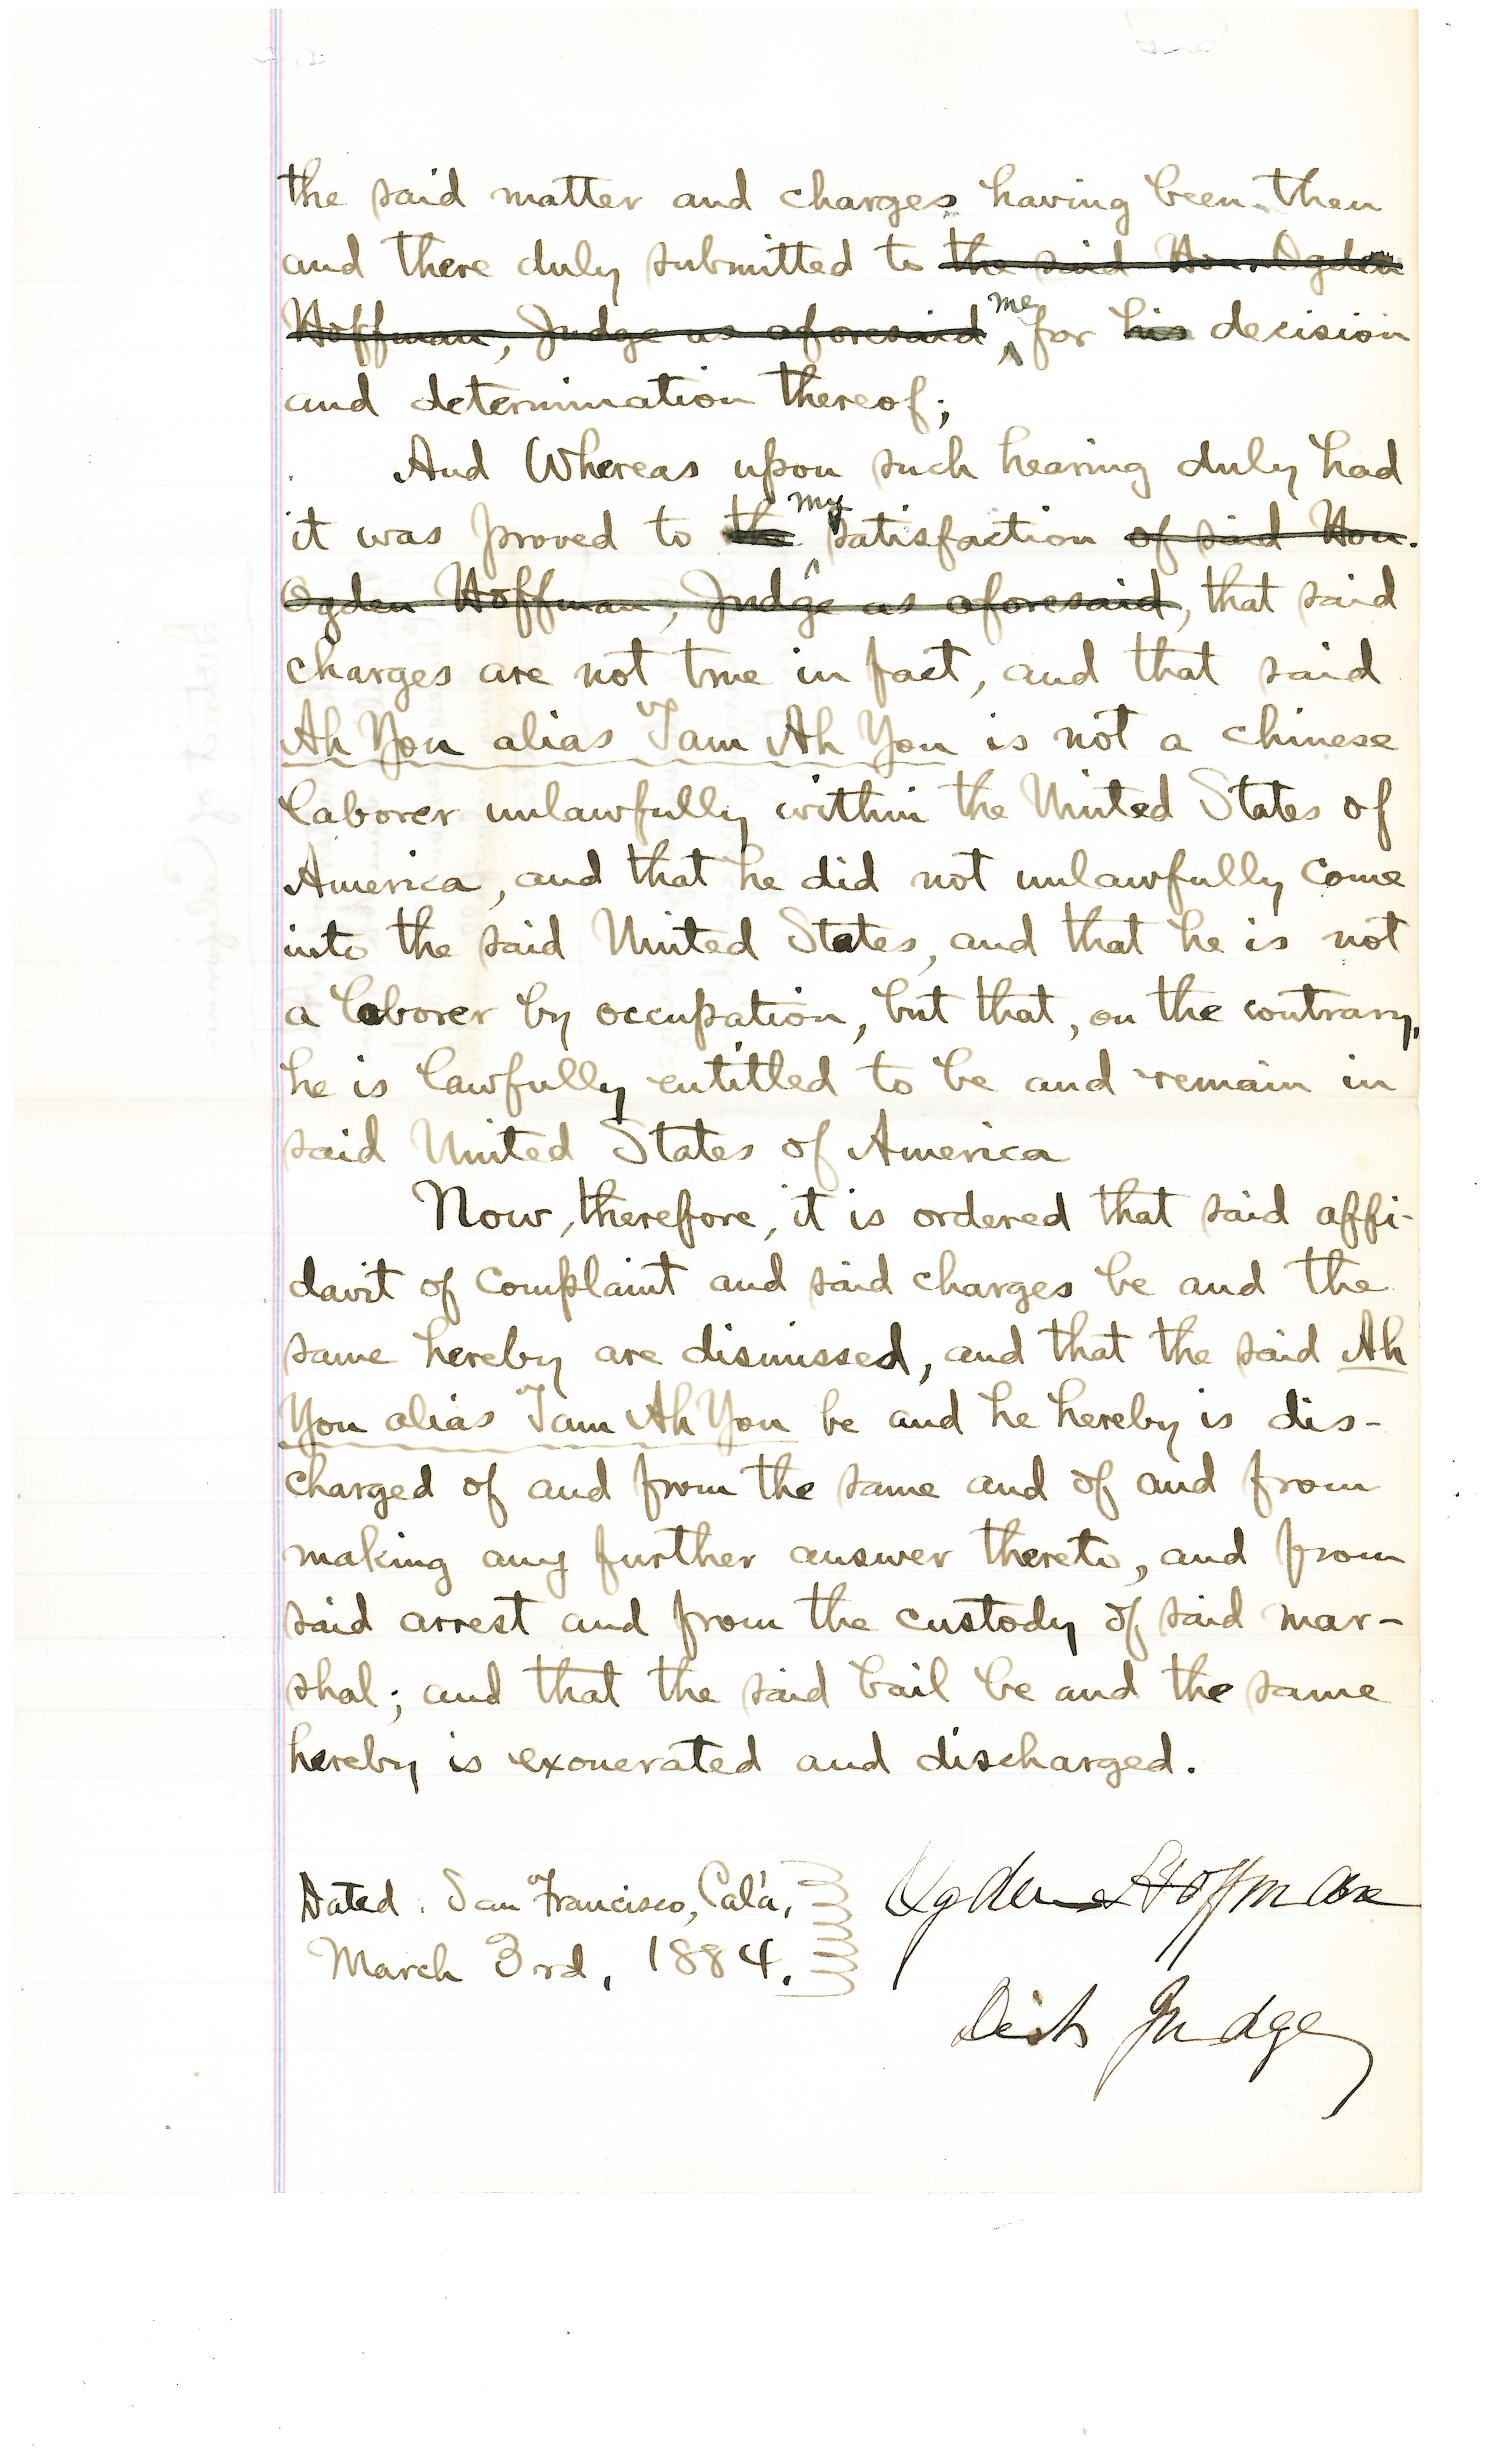 the said matter and charges having been then
and there duly submitted to the said Hon. Ogden
Hoffman, Judge as aforesaid, me for his decision
and determination thereof;
And Whereas upon such hearing duly had
it was proved to the my satisfaction of said Hon.
Ogden Hoffman, Judge as aforesaid, that said
charges are not true in fact, and that said
Ah You alias Tam Ah You is not a Chinese
laborer unlawfully within the United States of
America, and that he did not unlawfully come
into the said United States, and that he is not
a laborer by occupation, but that, on the contrary,
he is lawfully entitled to be and remain in
said United States of America
Now, therefore, it is ordered that said affi-
davit of complaint and said charges be and the
same hereby are dismissed, and that the said Ah
You alias Tam Ah You be and he hereby is dis-
charged of and from the same and of and from
making any further answer thereto, and from
said arrest and from the custody of said mar-
shal; and that the said bail be and the same
hereby is exonerated and discharged.
Dated. San Francisco, Cala,
March 3rd, 1884.
Ogden Hoffman
Dist Judge